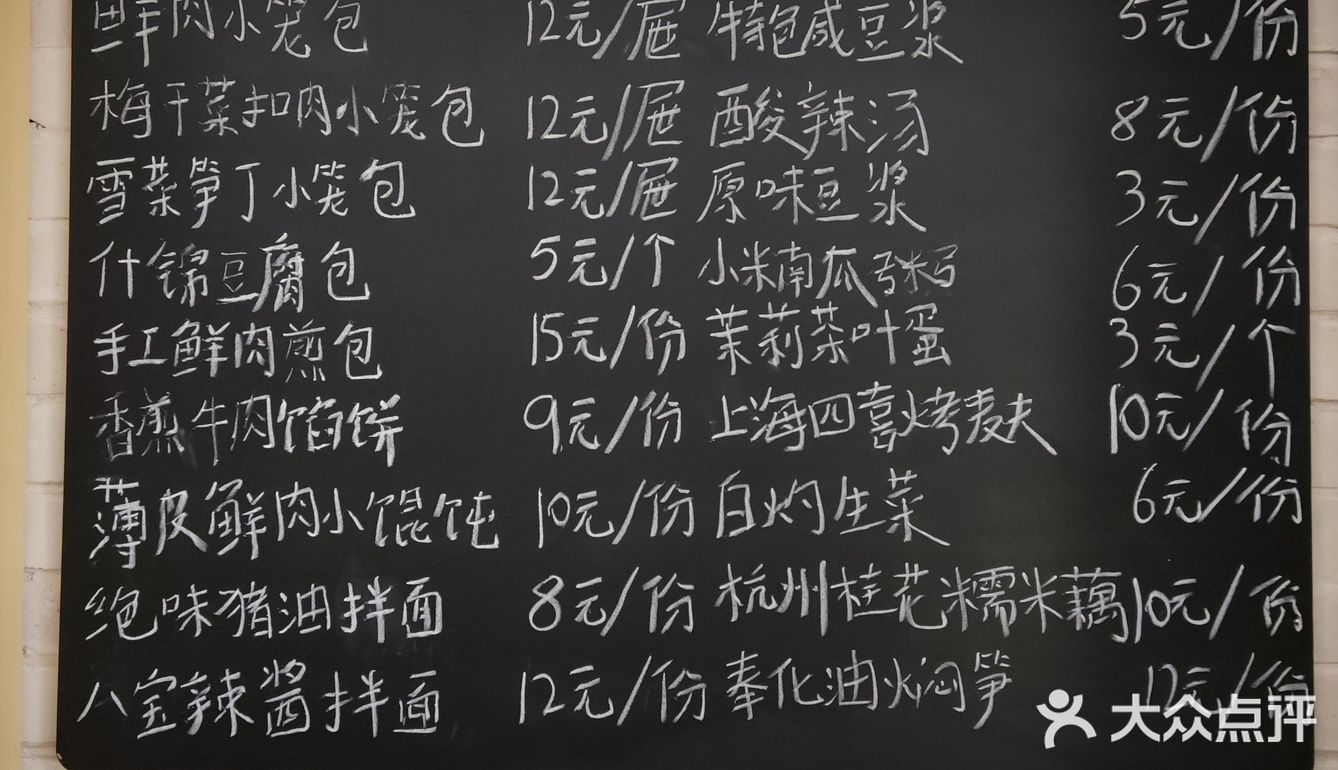 鲜肉小笼包 12元/屉 特色咸豆浆 5元/份
梅干菜扣肉小笼包 12元/屉 酸辣汤 8元/份
雪菜笋丁小笼包 12元/屉 原味豆浆 3元/份
什锦豆腐包 5元/个 小米南瓜粥 6元/份
手工鲜肉煎包 15元/份 茉莉茶叶蛋 3元/个
香煎牛肉馅饼 9元/份 上海四喜烤麦夫 10元/份
薄皮鲜肉小馄饨 10元/份 白灼生菜 6元/份
绝味猪油拌面 8元/份 杭州桂花糯米藕 10元/份
八宝辣酱拌面 12元/份 奉化油焖笋 12元/份
大众点评